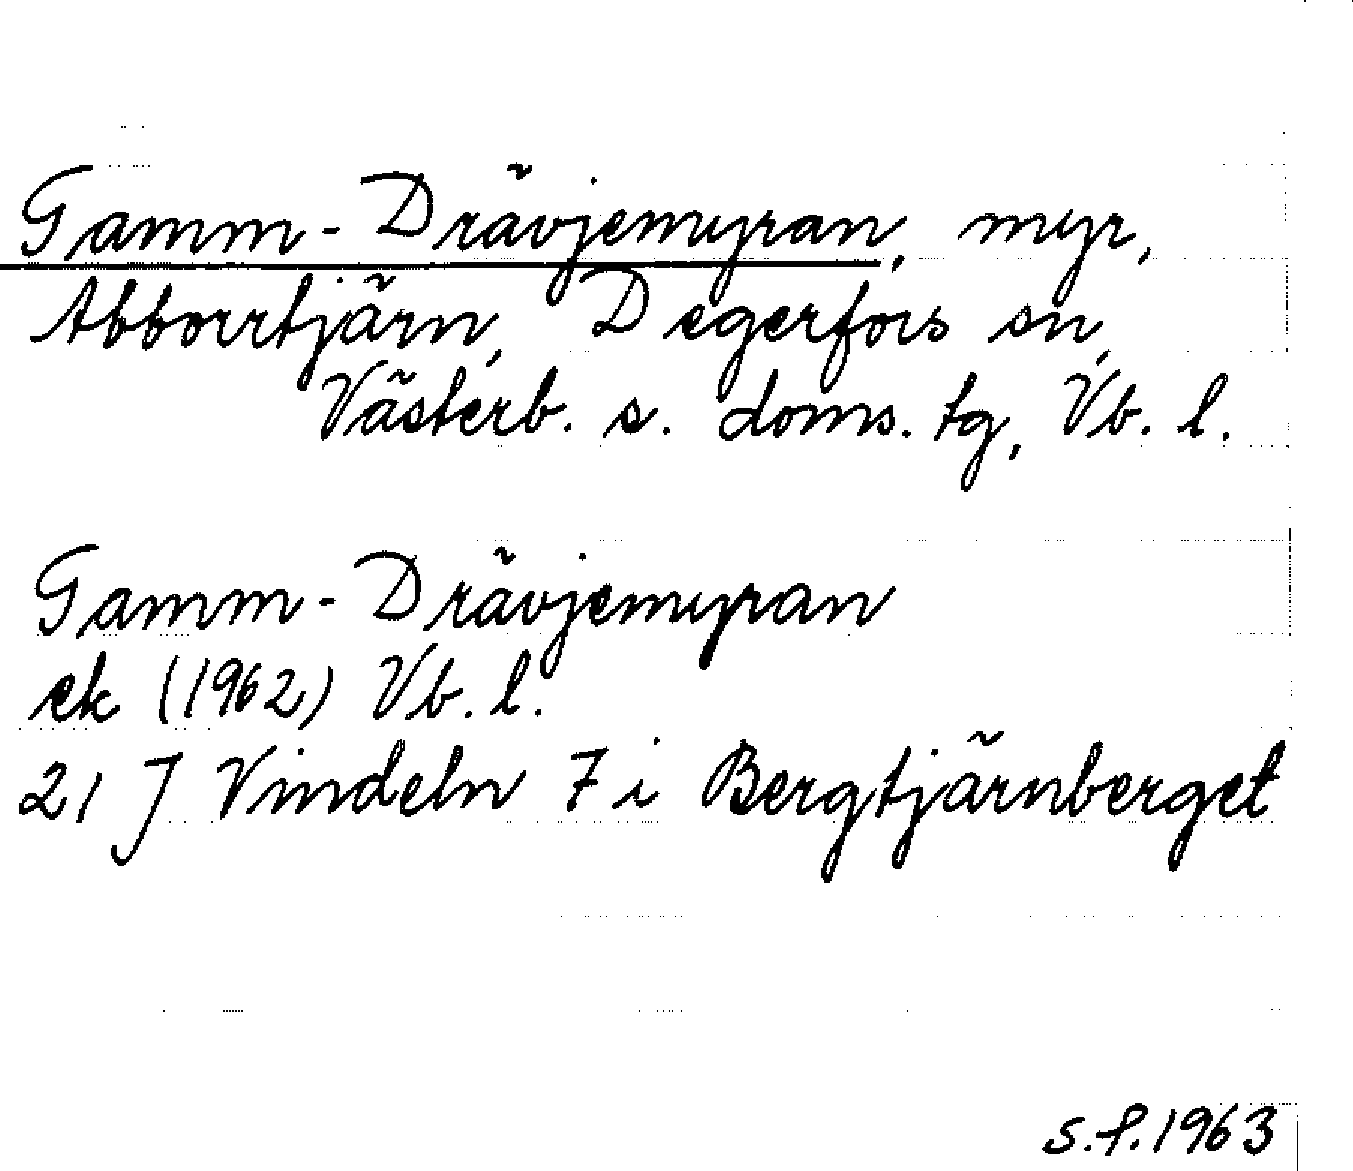 Gamm-Drävjemyran, myr,
Abborrtjärn, Degerfors sn,
Västerb. s. doms. tg, Vb. l.
Gamm-Drävjemyran
ek (1962) Vb. l.
21 J Vindeln 7 i Bergtjärnberget
s.f. 1963